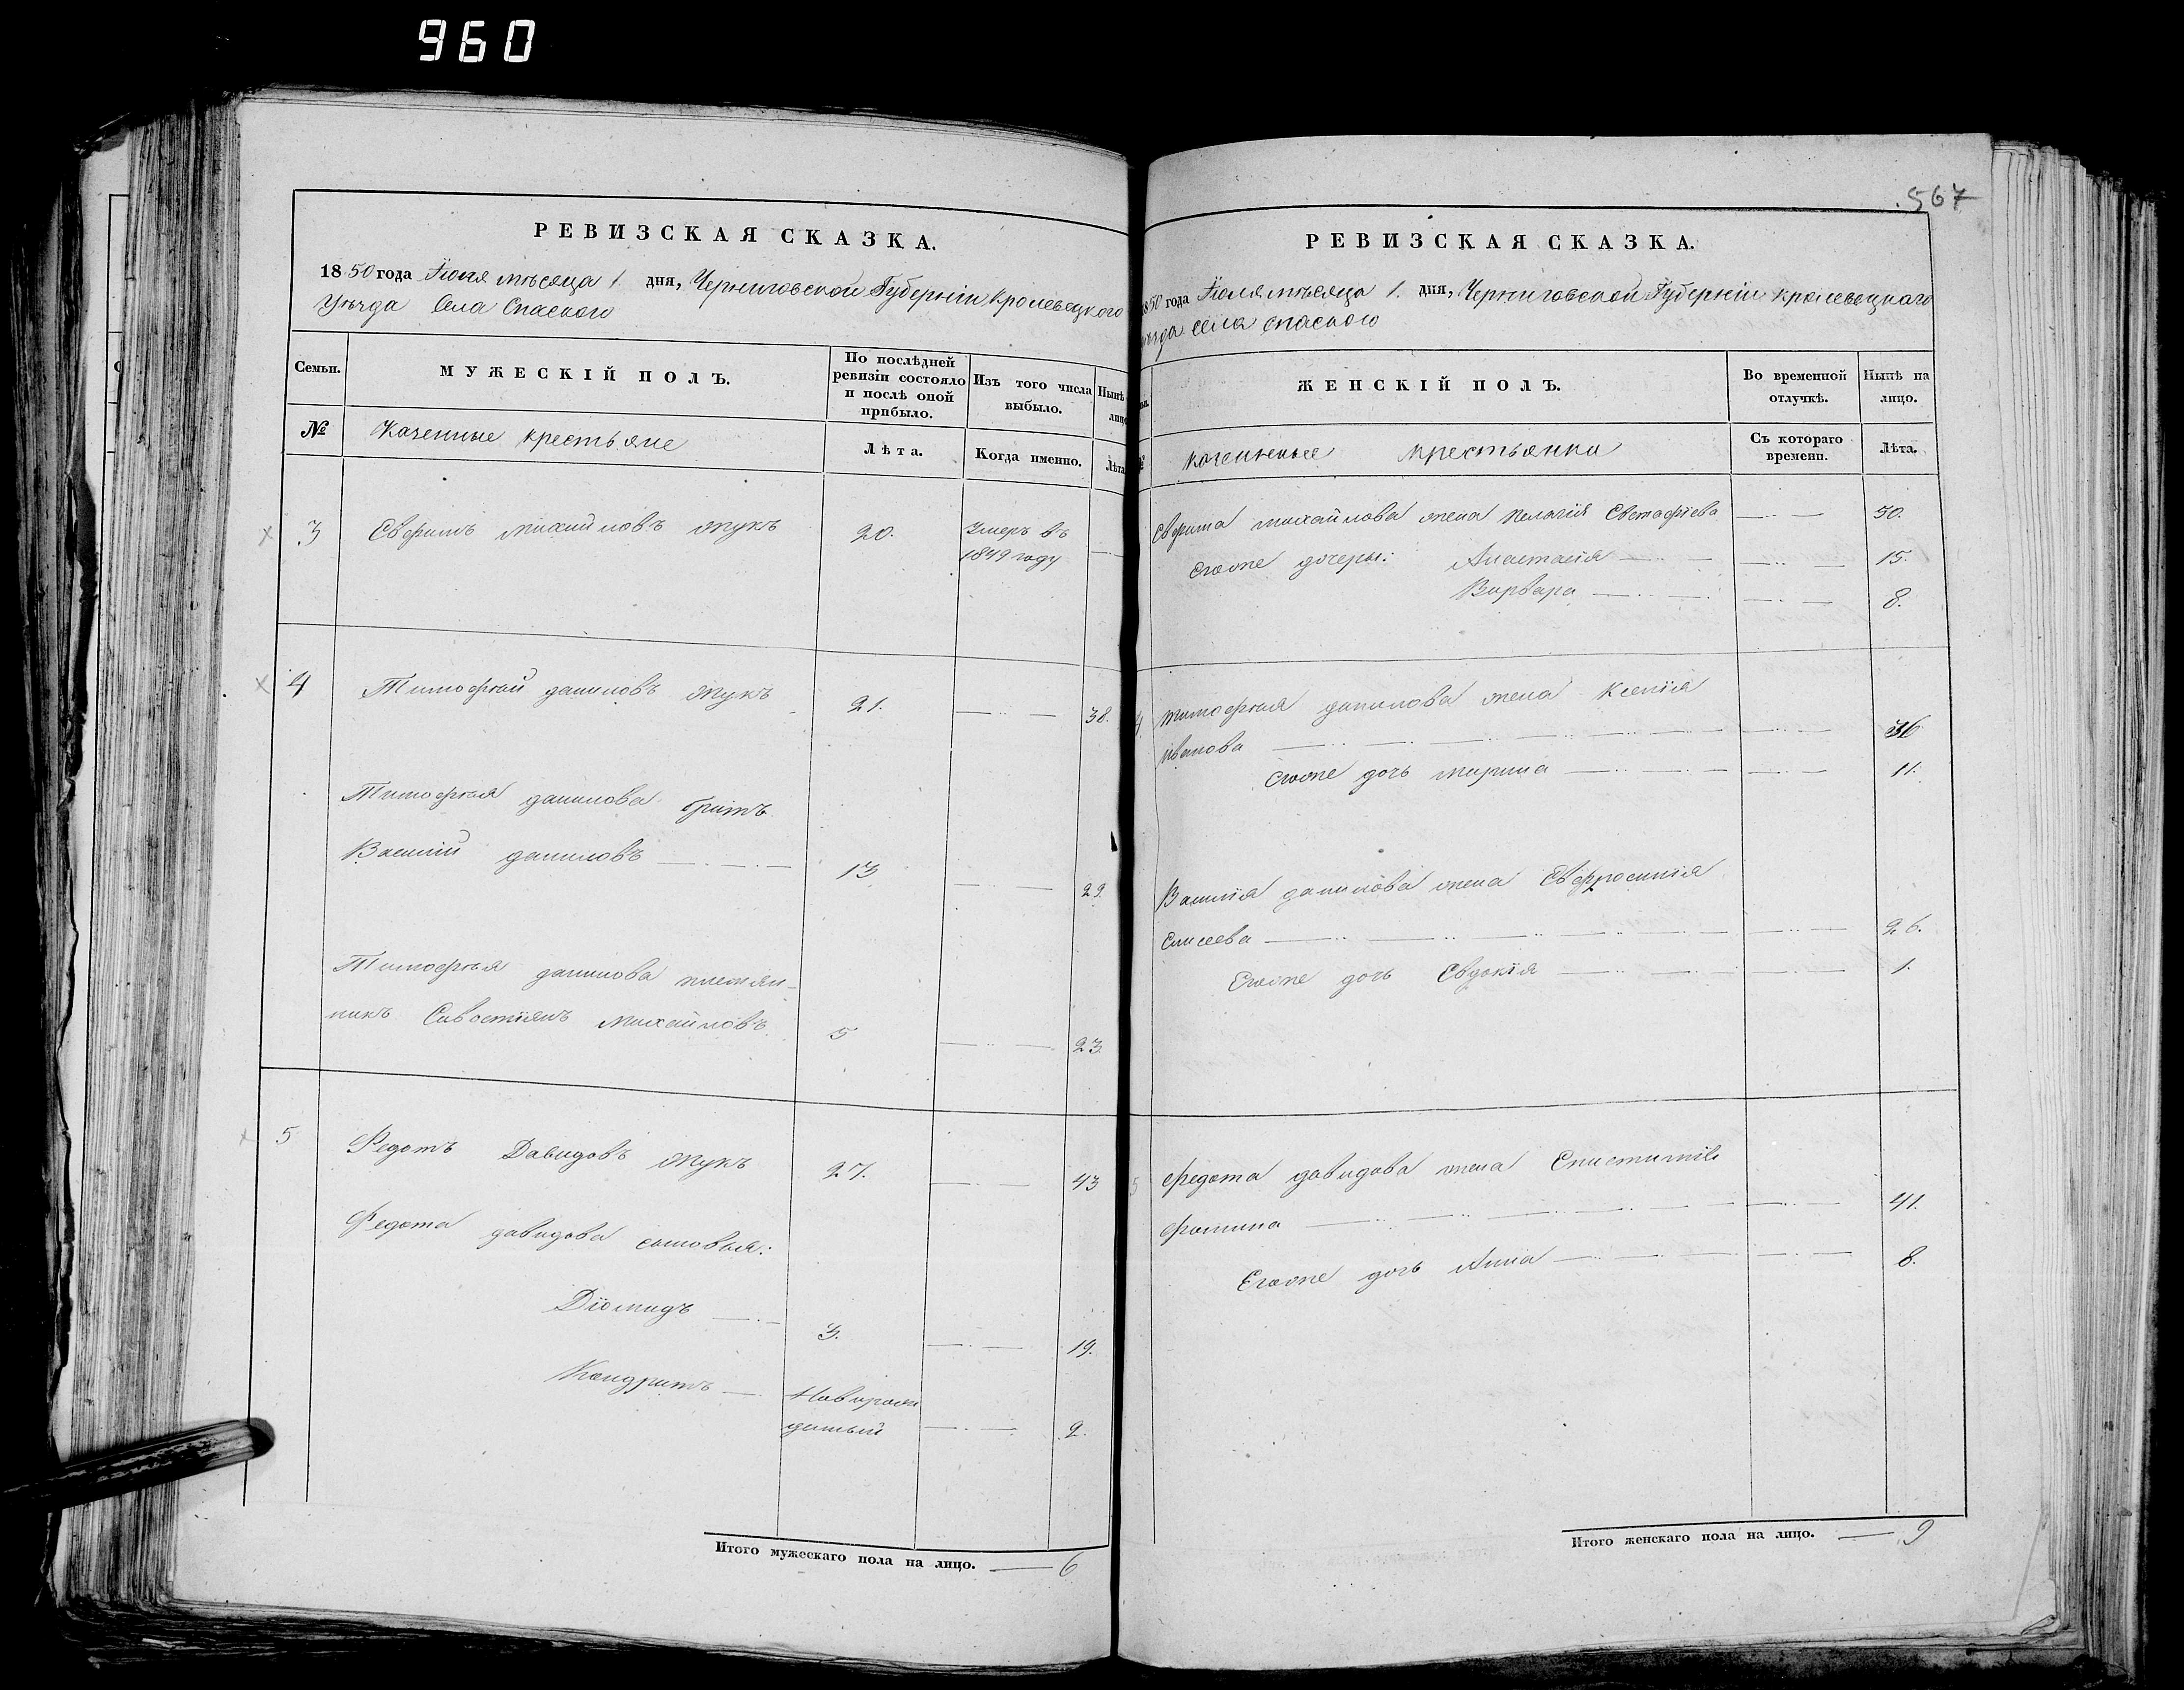 960
РЕВИЗСКАЯ СКАЗКА.
1850 года Іюля мѣсяца 1. дня, Черниговской Губерніи Кролевецкого
Уѣзда Села Спаского
Семьи. МУЖЕСКІЙ ПОЛЪ. По послѣдней ревизіи состояло и послѣ оной прибыло. Изъ того числа выбыло. Нынѣ лицо
№ Казенные крестьяне Лѣта. Когда именно. Лѣта
3 Евфимъ Михайловъ Жукъ 20. Умеръ въ
1849 году
4 Тимофѣй Даниловъ Жукъ 21. 38.
Тимофѣя Данилова братъ
Василій Даниловъ 13 29.
Тимофѣя Данилова племян-
никъ Савостіянъ Михайловъ 5 23.
5 Федотъ Давидовъ Жукъ 27. 43
Федота Давидова сыновья:
Діомидъ 3. 19.
Кондратъ Новорож
датый 2.
Итого мужескаго пола на лицо. 6
567
РЕВИЗСКАЯ СКАЗКА.
1850 года Іюля мѣсяца 1. дня, Черниговской Губерніи Кролевецкаго
ѣзда села Спаского
ЖЕНСКІЙ ПОЛЪ. Во временной отлучкѣ. Нынѣ на лицо.
Казенные крестьянки Съ котораго времени. Лѣта.
Евфима Михайлова жена Пелагія Евстафіева 50.
Егоже дочеры: Анастасія 15.
Варвара 8.
4 Тимофѣя Данилова жена Ксенія
Иванова 36
Егоже дочь Марина 11.
Василія Данилова жена Евфросинія
Елисеева 26.
Егоже дочь Евдокія 1.
5 Федота Давидова жена
Фомина 41.
Егоже дочь Анна 8.
Итого женскаго пола на лицо. 9